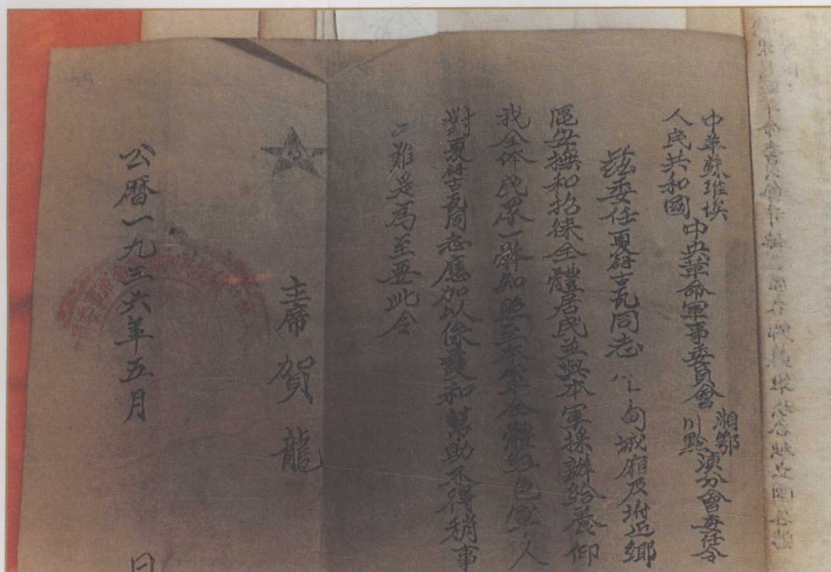 中華蘇維埃
人民共和國
中央革命軍事委員會
湘鄂
川黔
滇分會委任令
茲委任夏古瓦同志甸城廂及附近鄉
區安撫和招徠全體居民並與本軍採辦給養仰
我全体民眾一體知照至本軍全體紅色軍人
對夏古瓦同志應加以保護和幫助不得稍事
難是為至要此令
主席 賀龍
公曆一九三六年五月 日